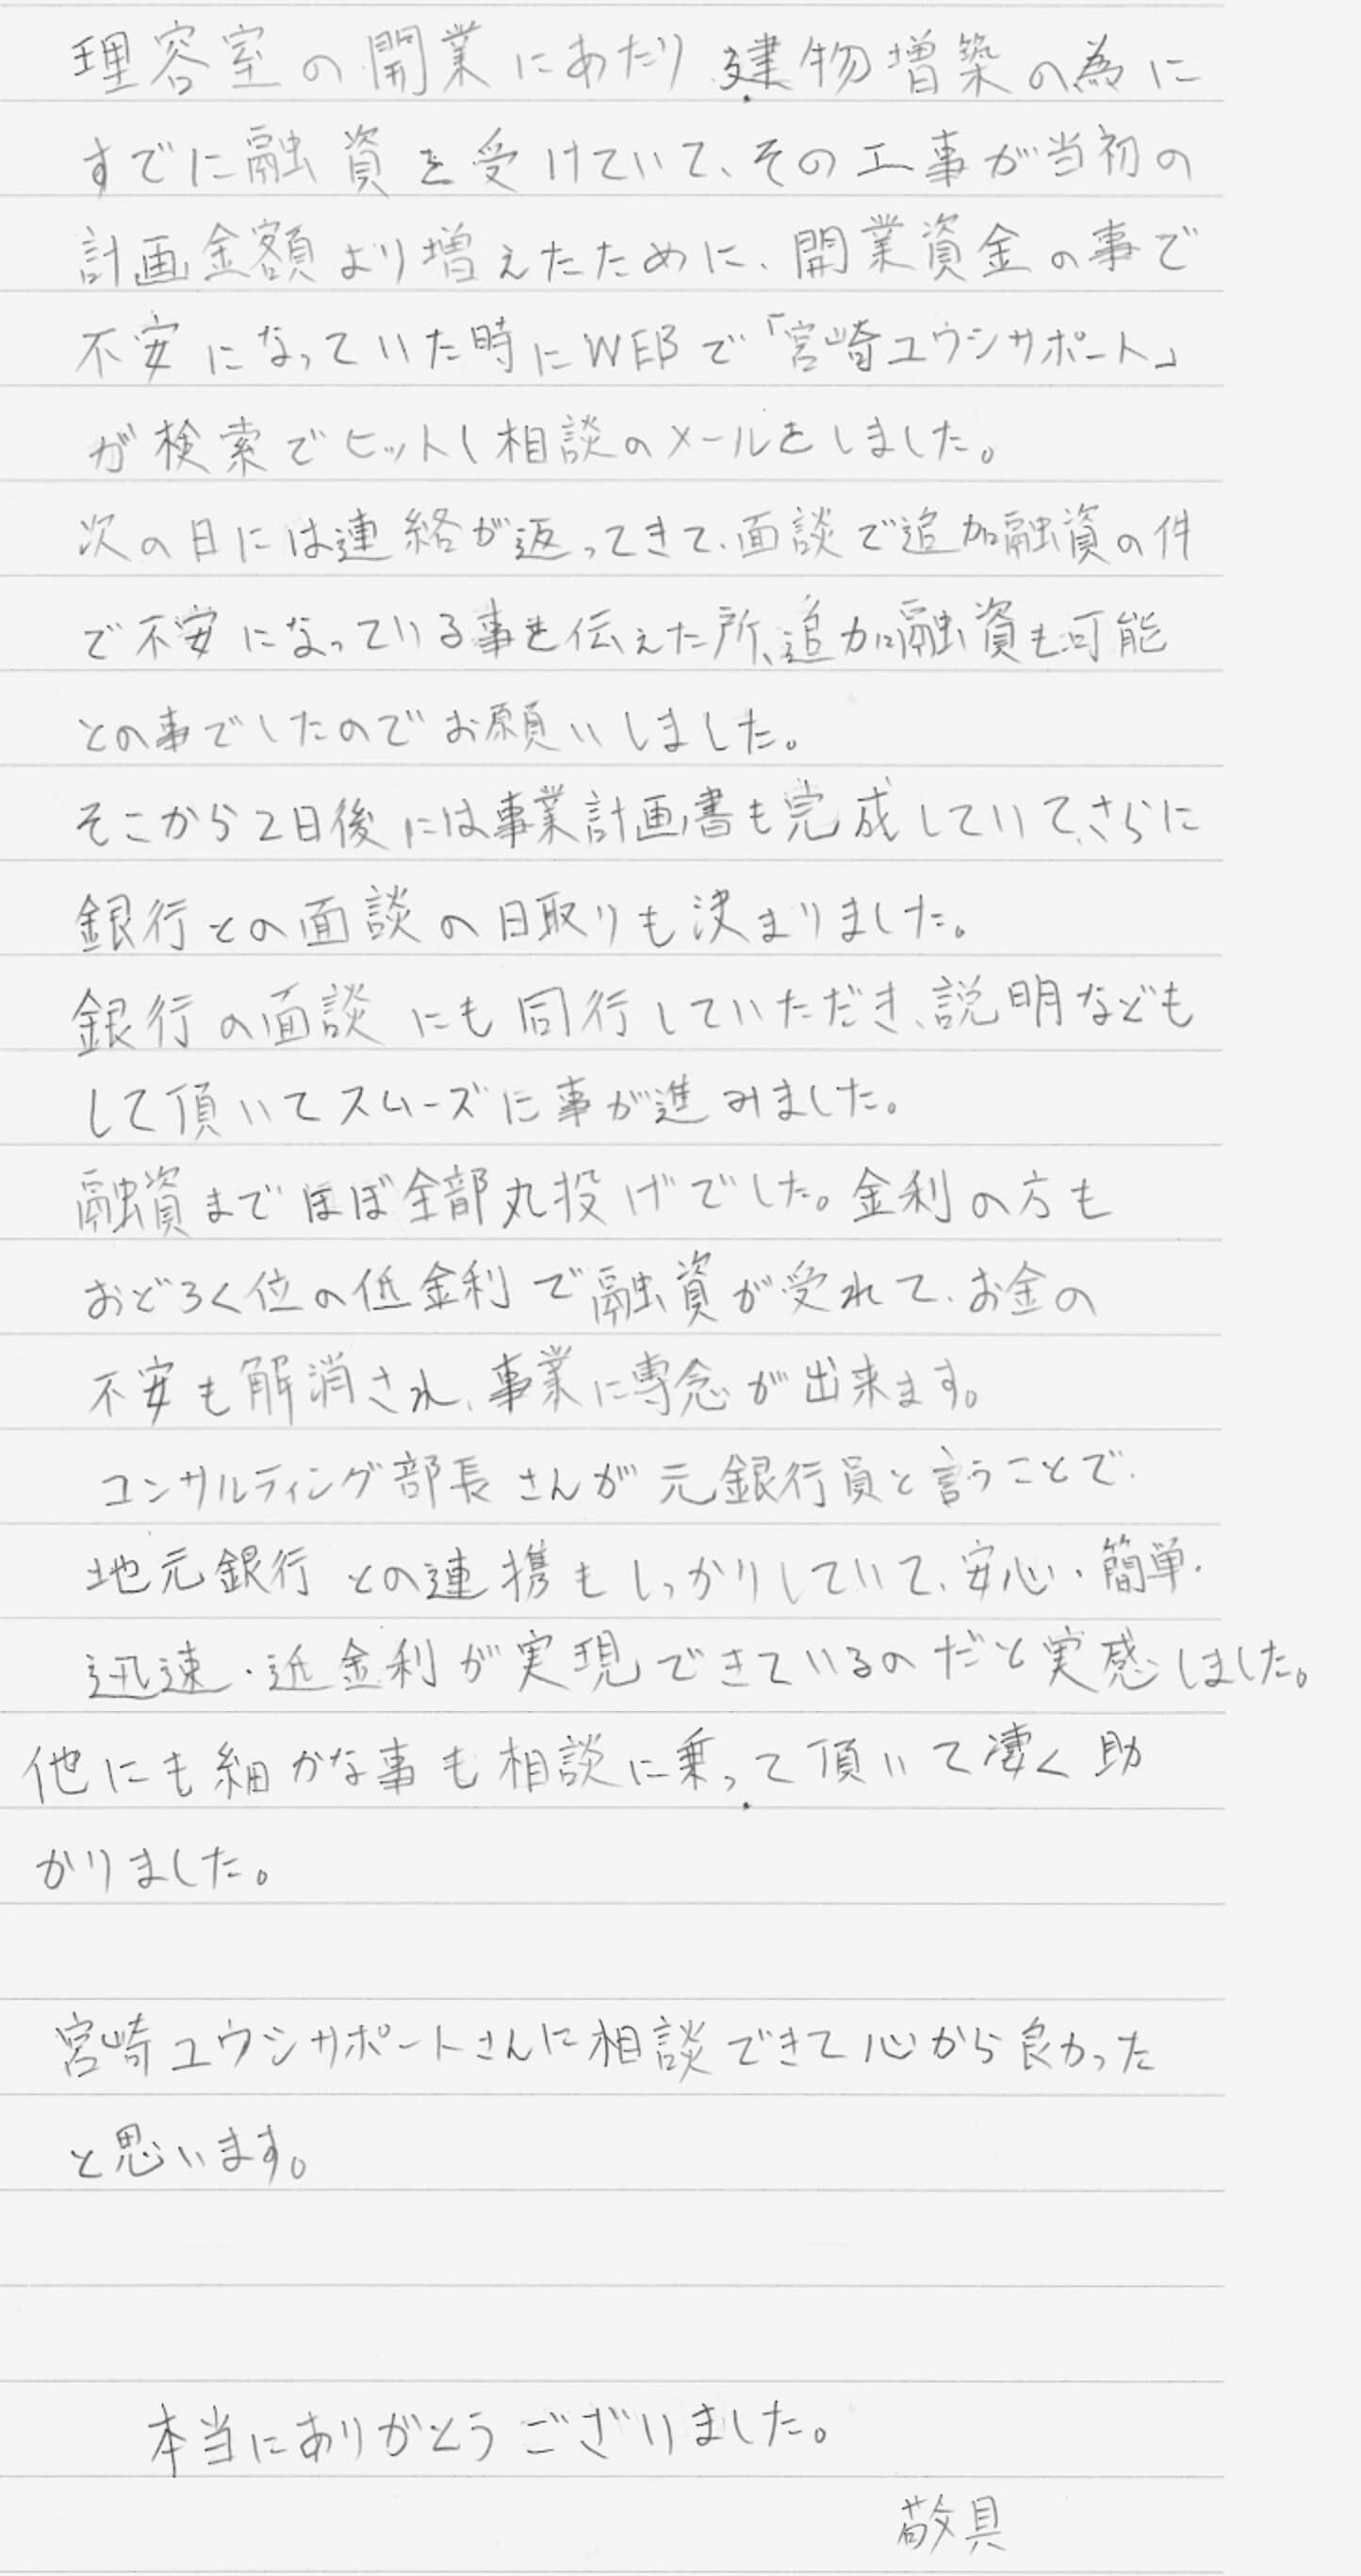 理容室の開業にあたり建物増築の為に
すでに融資を受けていて、その工事が当初の
計画金額より増えたために、開業資金の事で
不安になっていた時にWEBで「宮崎ユウシサポート」
が検索でヒットし相談のメールをしました。
次の日には連絡が返ってきて、面談で追加融資の件
で不安になっている事を伝えた所、追加融資も可能
との事でしたのでお願いしました。
そこから2日後には事業計画書も完成していて、さらに
銀行との面談の日取りも決まりました。
銀行の面談にも同行していただき、説明なども
して頂いてスムーズに事が進みました。
融資までほぼ全部丸投げでした。金利の方も
おどろく位の低金利で融資が受れて、お金の
不安も解消され、事業に専念が出来ます。
コンサルティング部長さんが元銀行員と言うことで、
地元銀行との連携もしっかりしていて、安心・簡単・
迅速・近金利が実現できているのだと実感しました。
他にも細かな事も相談に乗って頂いて凄く助
かりました。
宮崎ユウシサポートさんに相談できて心から良かった
と思います。
本当にありがとうございました。
敬具